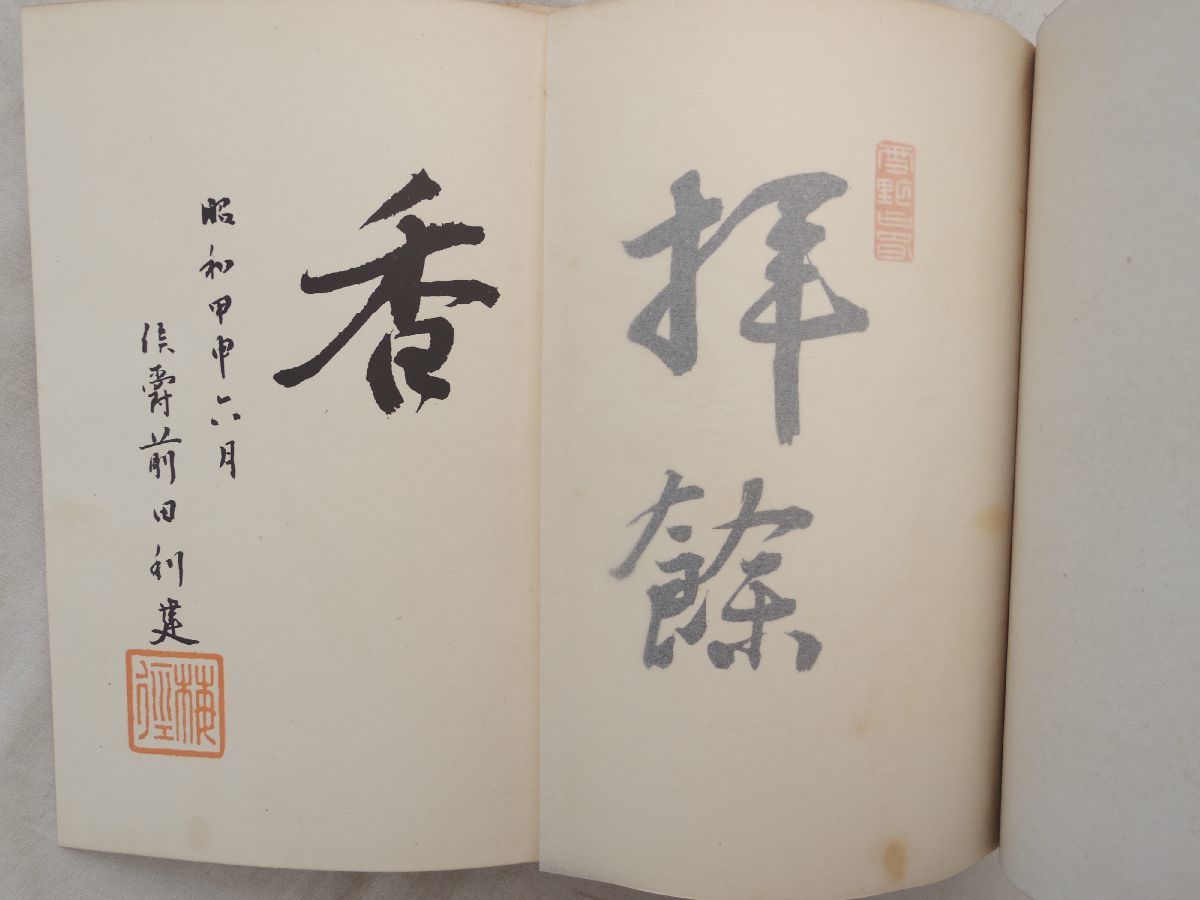 餘
香
昭和甲申六月
侯爵前田利建
梅徑